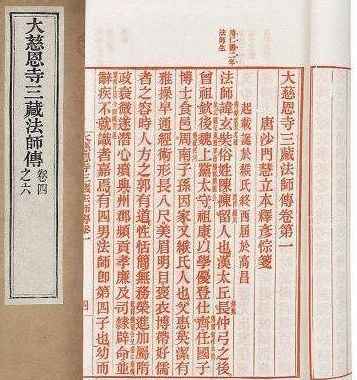 大慈恩寺三藏法師傳 卷四之六
法師生
大慈恩寺三藏法師傳卷第一
唐沙門慧立本釋彥悰箋
起載誕於緱氏終西屆於高昌
法師諱玄奘俗姓陳陳留人也漢太丘長仲弓之後
曾祖欽後魏上黨太守祖康以學優登仕齊任國子
博士食邑周南子孫因家又緱氏人也父惠英潔有
雅操早通經術形長八尺美眉明目褒衣博帶好儒
者之容時人方之郭有道性恬簡無務榮進加屬隋
政衰微遂潛心墳典州郡頻貢孝廉及司隸辟命並
辭疾不就識者嘉焉有四男法師即第四子也幼而
四